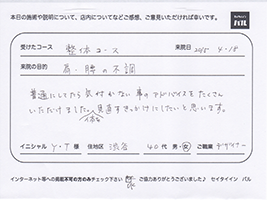 本日の施術や説明について、店内についてなどご感想、ご意見いただければ幸いです。
バル
受けたコース 整体コース 来院日 2015 4・18
来院の目的 肩・腰の不調
普通にしてたら気付かない事のアドバイスをたくさん
いただけました。体を見直すきっかけにしたいと思います。
イニシャル Y・T 様 住地区 渋谷 40代 男・女 ご職業 デザイナー
インターネット等への掲載不可の方のみチェック下さい ご協力ありがとうございました♪ セイタイイン バル